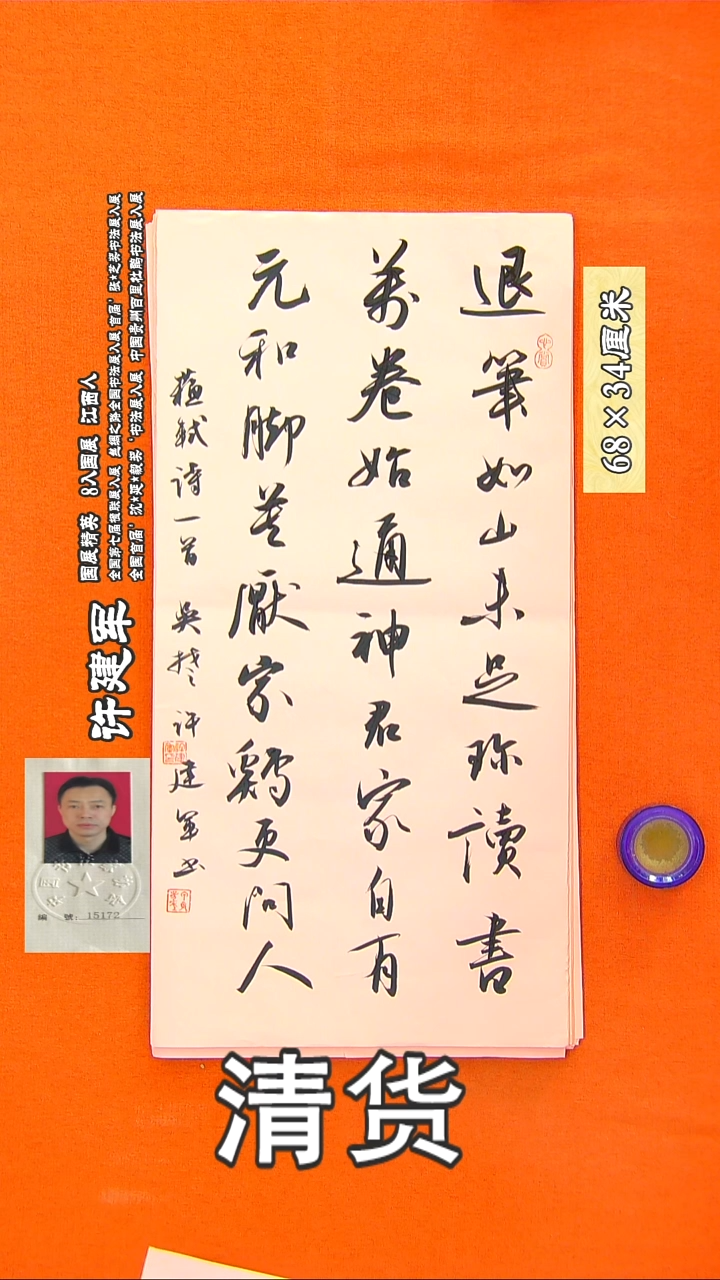 退筆如山未足珎讀書
萬卷始通神君家自有
元和脚莫厭家鷄更問人
蘇軾诗一首 吳楚 许建军书
68×34厘米
许建军
国展精英 8入国展 江西人
全国第七届楹联展入展 丝绸之路全国书法展入展 首届'张★芝奖书法展入展
全国首届'沈★延★毅奖'书法展入展 中国贵州百里杜鹃书法展入展
編 號：15172
清货